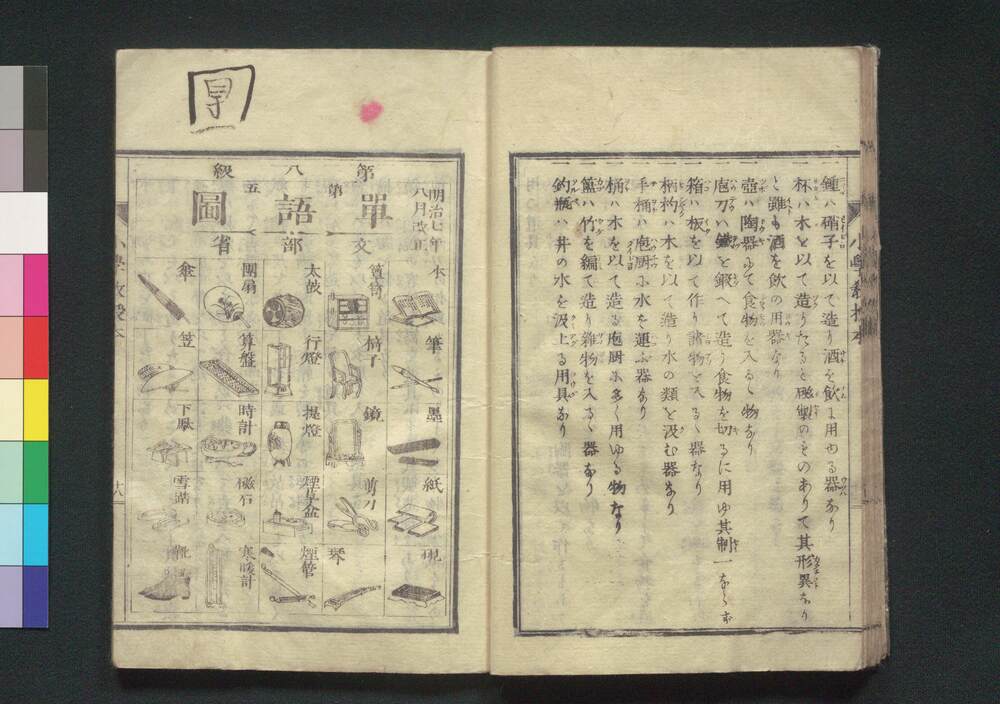 一鍾ハ硝子を以て造り酒を飲に用ゆる器なり
一杯ハ木を以て造りたると磁製のものありて其形異なり
と雖も酒を飲の用器なり
一壺ハ陶器にて食物を入るゝ物なり
一庖刀ハ鐵を鍛へて造り食物を切るに用ゆ其制一ならず
一箱ハ板を以て作り諸物を入るゝ器なり
一柄杓ハ木を以て造り水の類を汲む器なり
一手桶ハ庖厨に水を運ふ器なり
一桶ハ木を以て造る庖厨に多く用ゆる物なり
一籃ハ竹を編て造り雜物を入るゝ器なり
一釣瓶ハ井の水を汲上る用具なり
第八級
第五
單語圖
明治七年
八月改正
文部省
本
筆
墨
紙
硯
簞笥
椅子
鏡
剪刀
琴
太鼓
行燈
提燈
煙草盆
煙管
團扇
算盤
時計
磁石
寒暖計
傘
笠
下駄
雪踏
靴